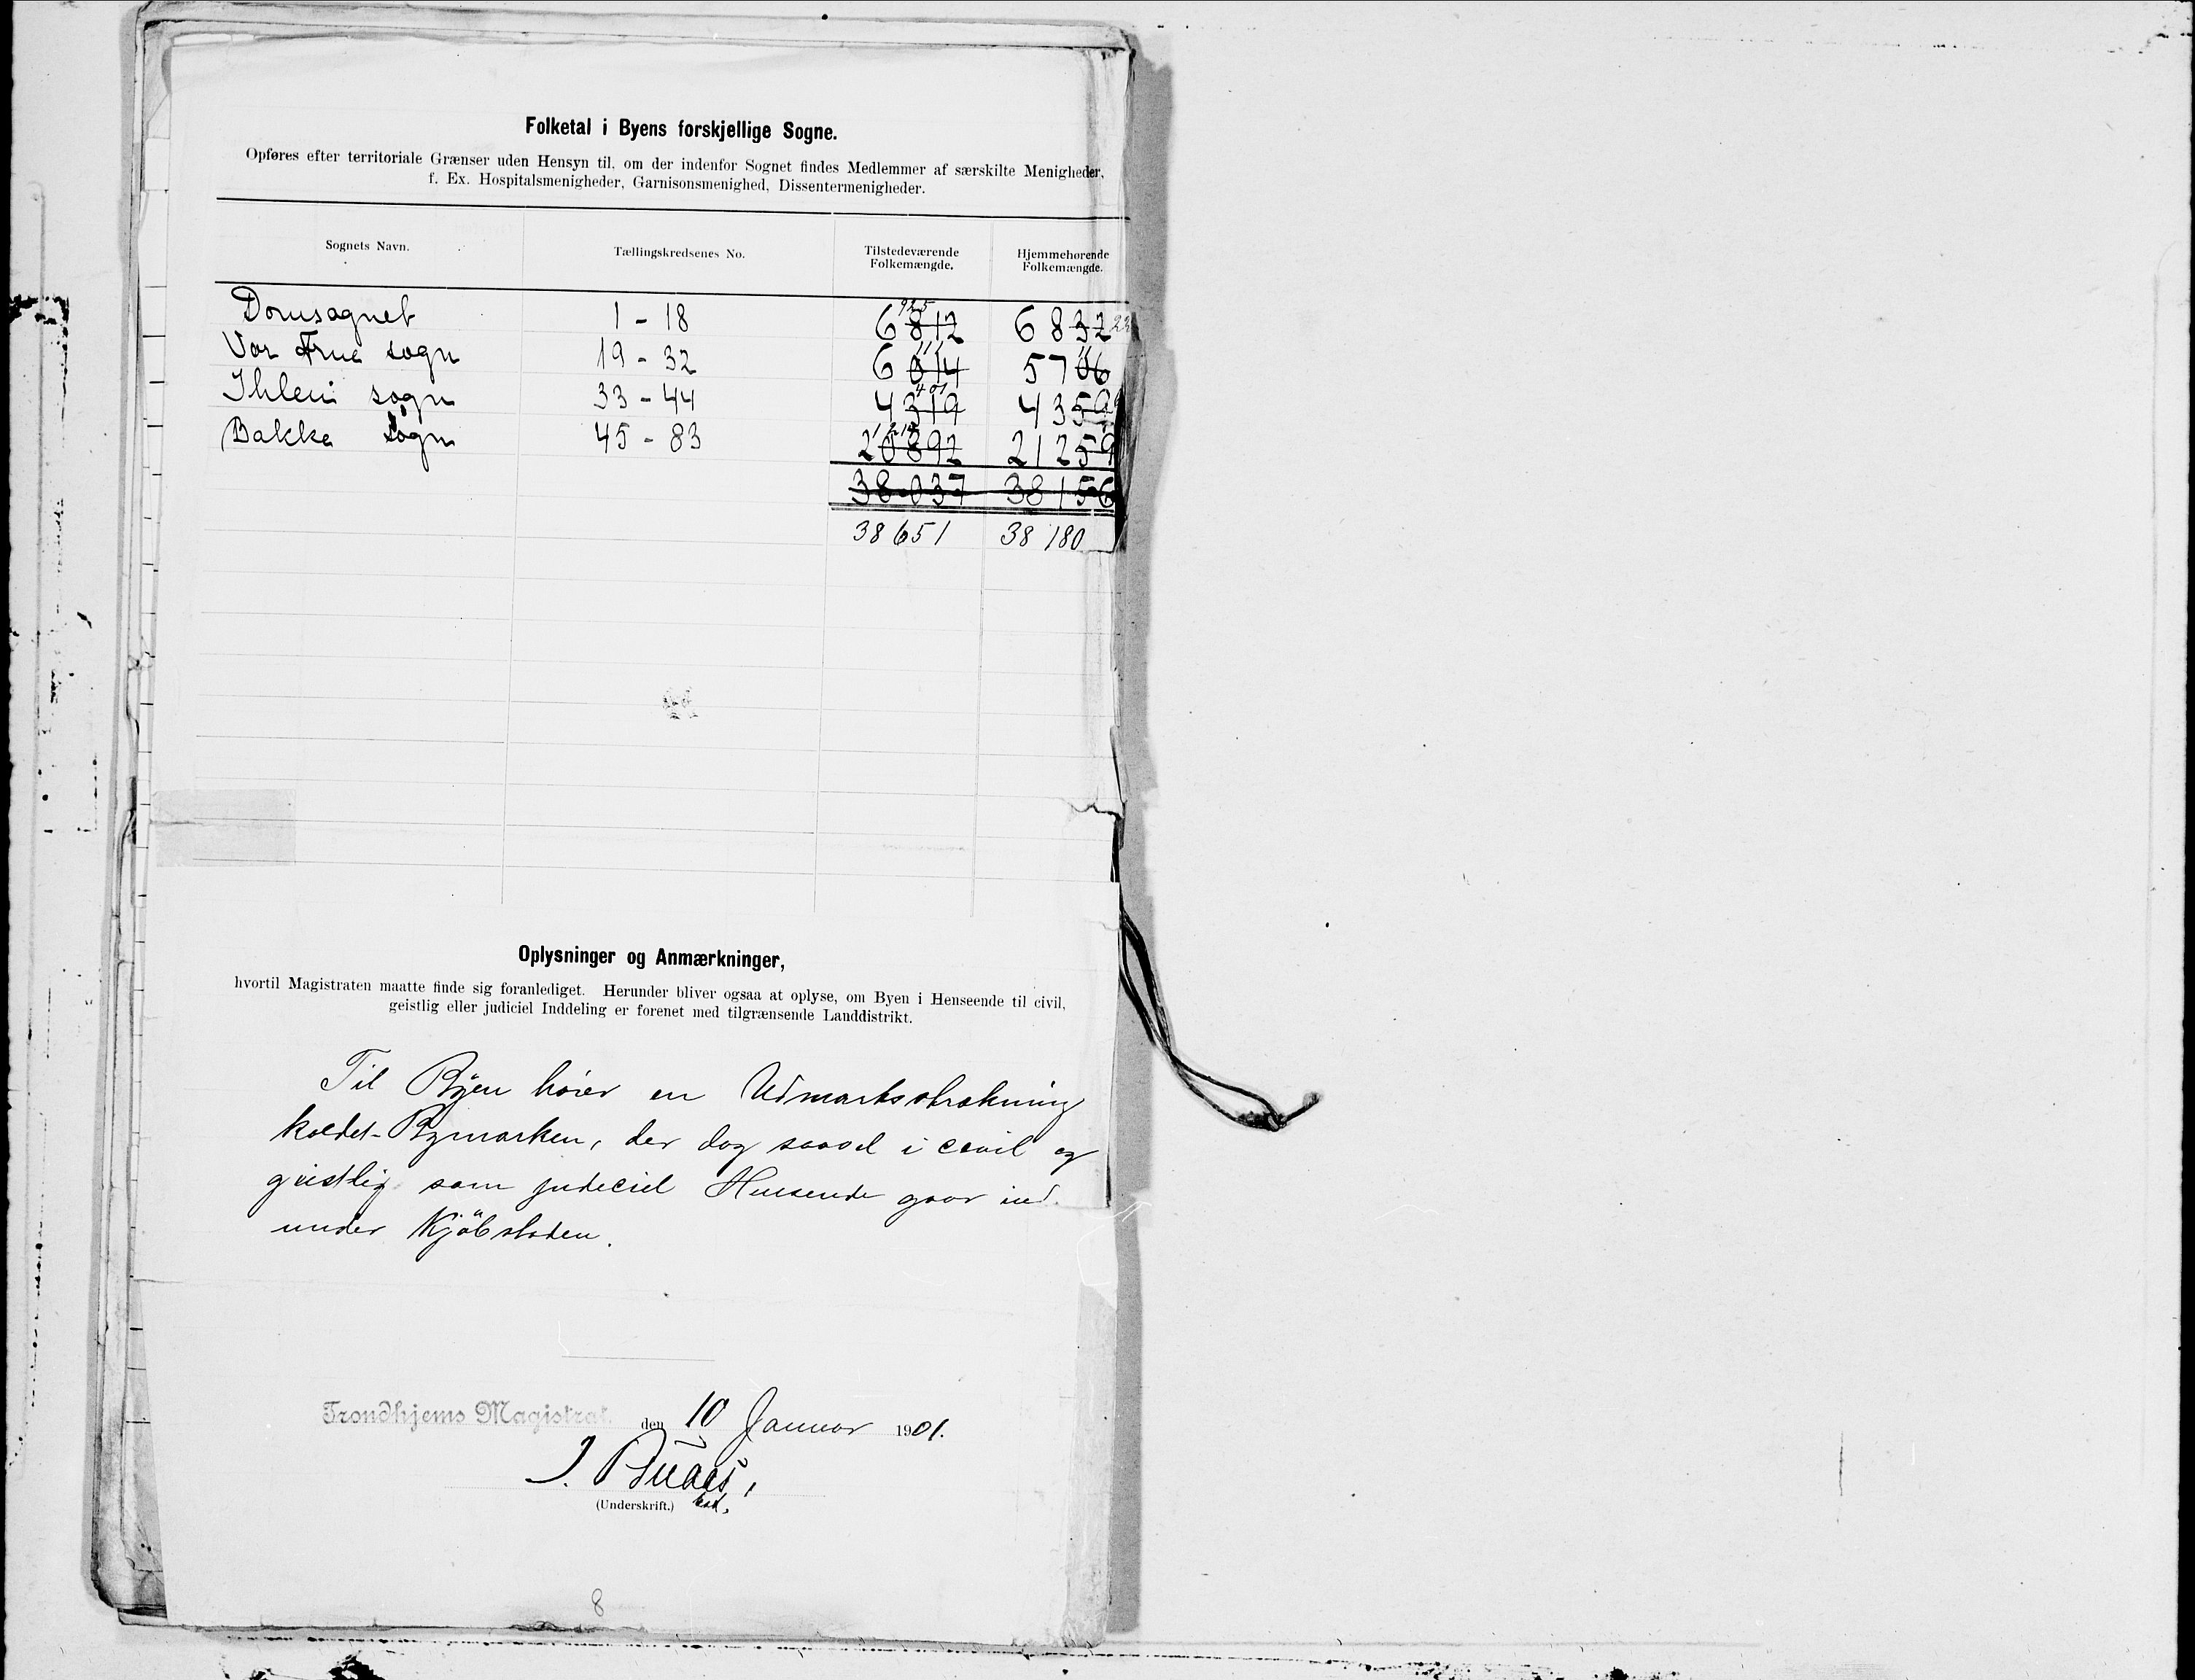 Folketal i Byens forskjellige Sogne.
Opføres efter territoriale Grænser uden Hensyn til, om der indenfor Sognet findes Medlemmer af særskilte Menigheder,
f. Ex. Hospitalsmenigheder, Garnisonsmenighed, Dissentermenigheder.
Sognets Navn. Tællingskredsenes No. Tilstedeværende Folkemængde. Hjemmehørende Folkemængde.
Domsognet 1 - 18 6812 925 6832 22
Vor Frue sogn 19 - 32 6014 111 5706 11
Ihlens sogn 33 - 44 4319 401 4359
Bakke sogn 45 - 83 20892 21259
38037 38156
38651 38180
Oplysninger og Anmærkninger,
hvortil Magistraten maatte finde sig foranlediget. Herunder bliver ogsaa at oplyse, om Byen i Henseende til civil,
geistlig eller judiciel Inddeling er forenet med tilgrænsende Landdistrikt.
Til Byen hører en Udmarksstrækning
kaldet Bymarken, der dog saavel i civil og
geistlig som judiciel Henseende gaar ind
under Kjöbstaden.
Trondhjems Magistrat. den 10 Januar 1901.
J. Buaas,
(Underskrift.) kst.
8